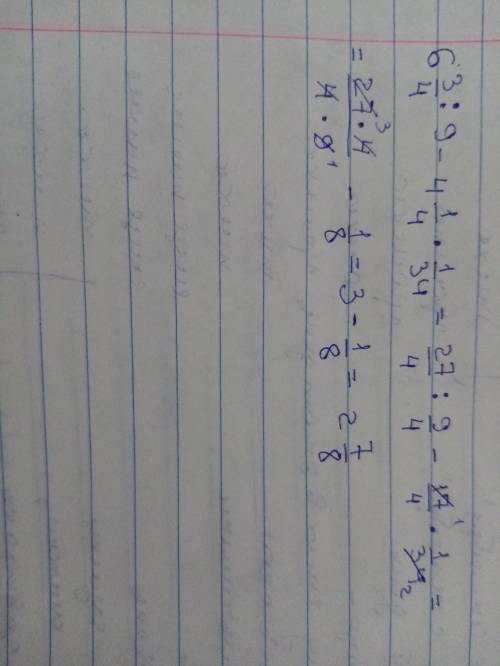 6 3/4 : 9 - 4 1/4 · 1/34 = 27/4 : 9/4 - 17 1/4 · 1/34 2 =
= 27 3 · 4/4 · 9 1 - 1/8 = 3 - 1/8 = 2 7/8